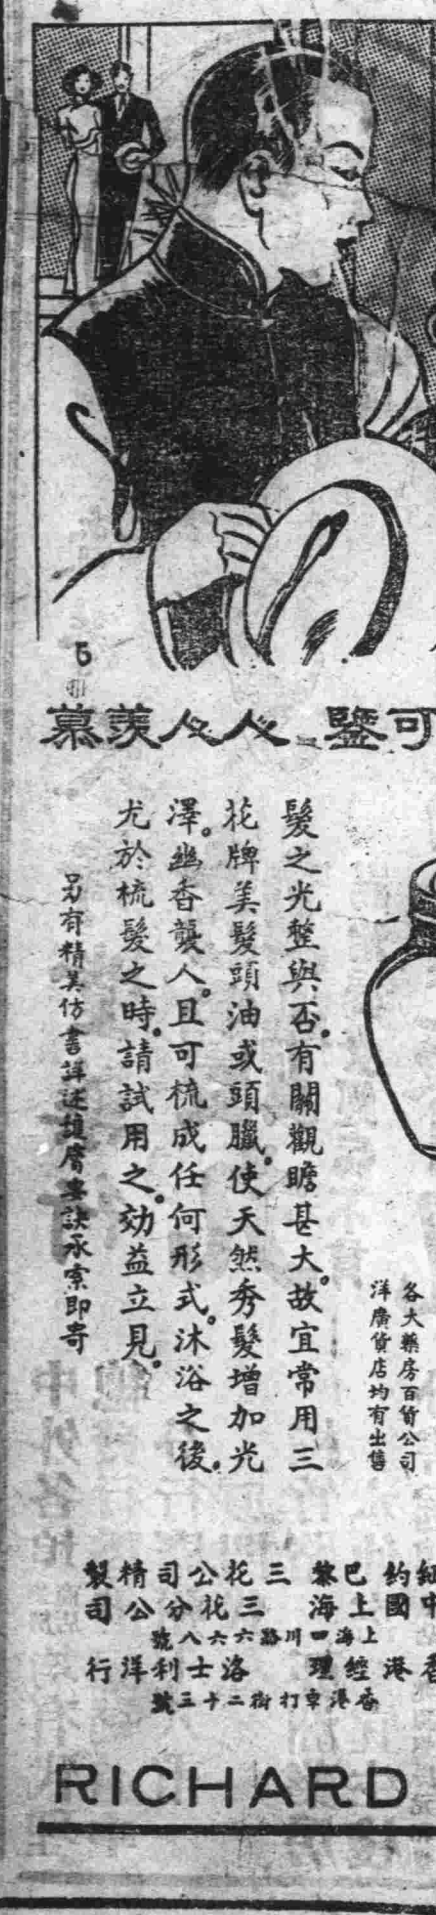 5
可鑒 人人羨慕
髮之光整與否。有關觀瞻甚大。故宜常用三
花牌美髮頭油或頭臘。使天然秀髮增加光
澤。幽香襲人。且可梳成任何形式。沐浴之後。
尤於梳髮之時。請試用之。効益立見。
另有精美仿書詳述護膚要訣承索即寄
各大藥房百貨公司
洋廣貨店均有出售
紐約巴黎 三花公司精製
中國上海 三花分公司
上海四川路六六八號
香港經理 洛士利洋行
香港打街二十三號
RICHARD